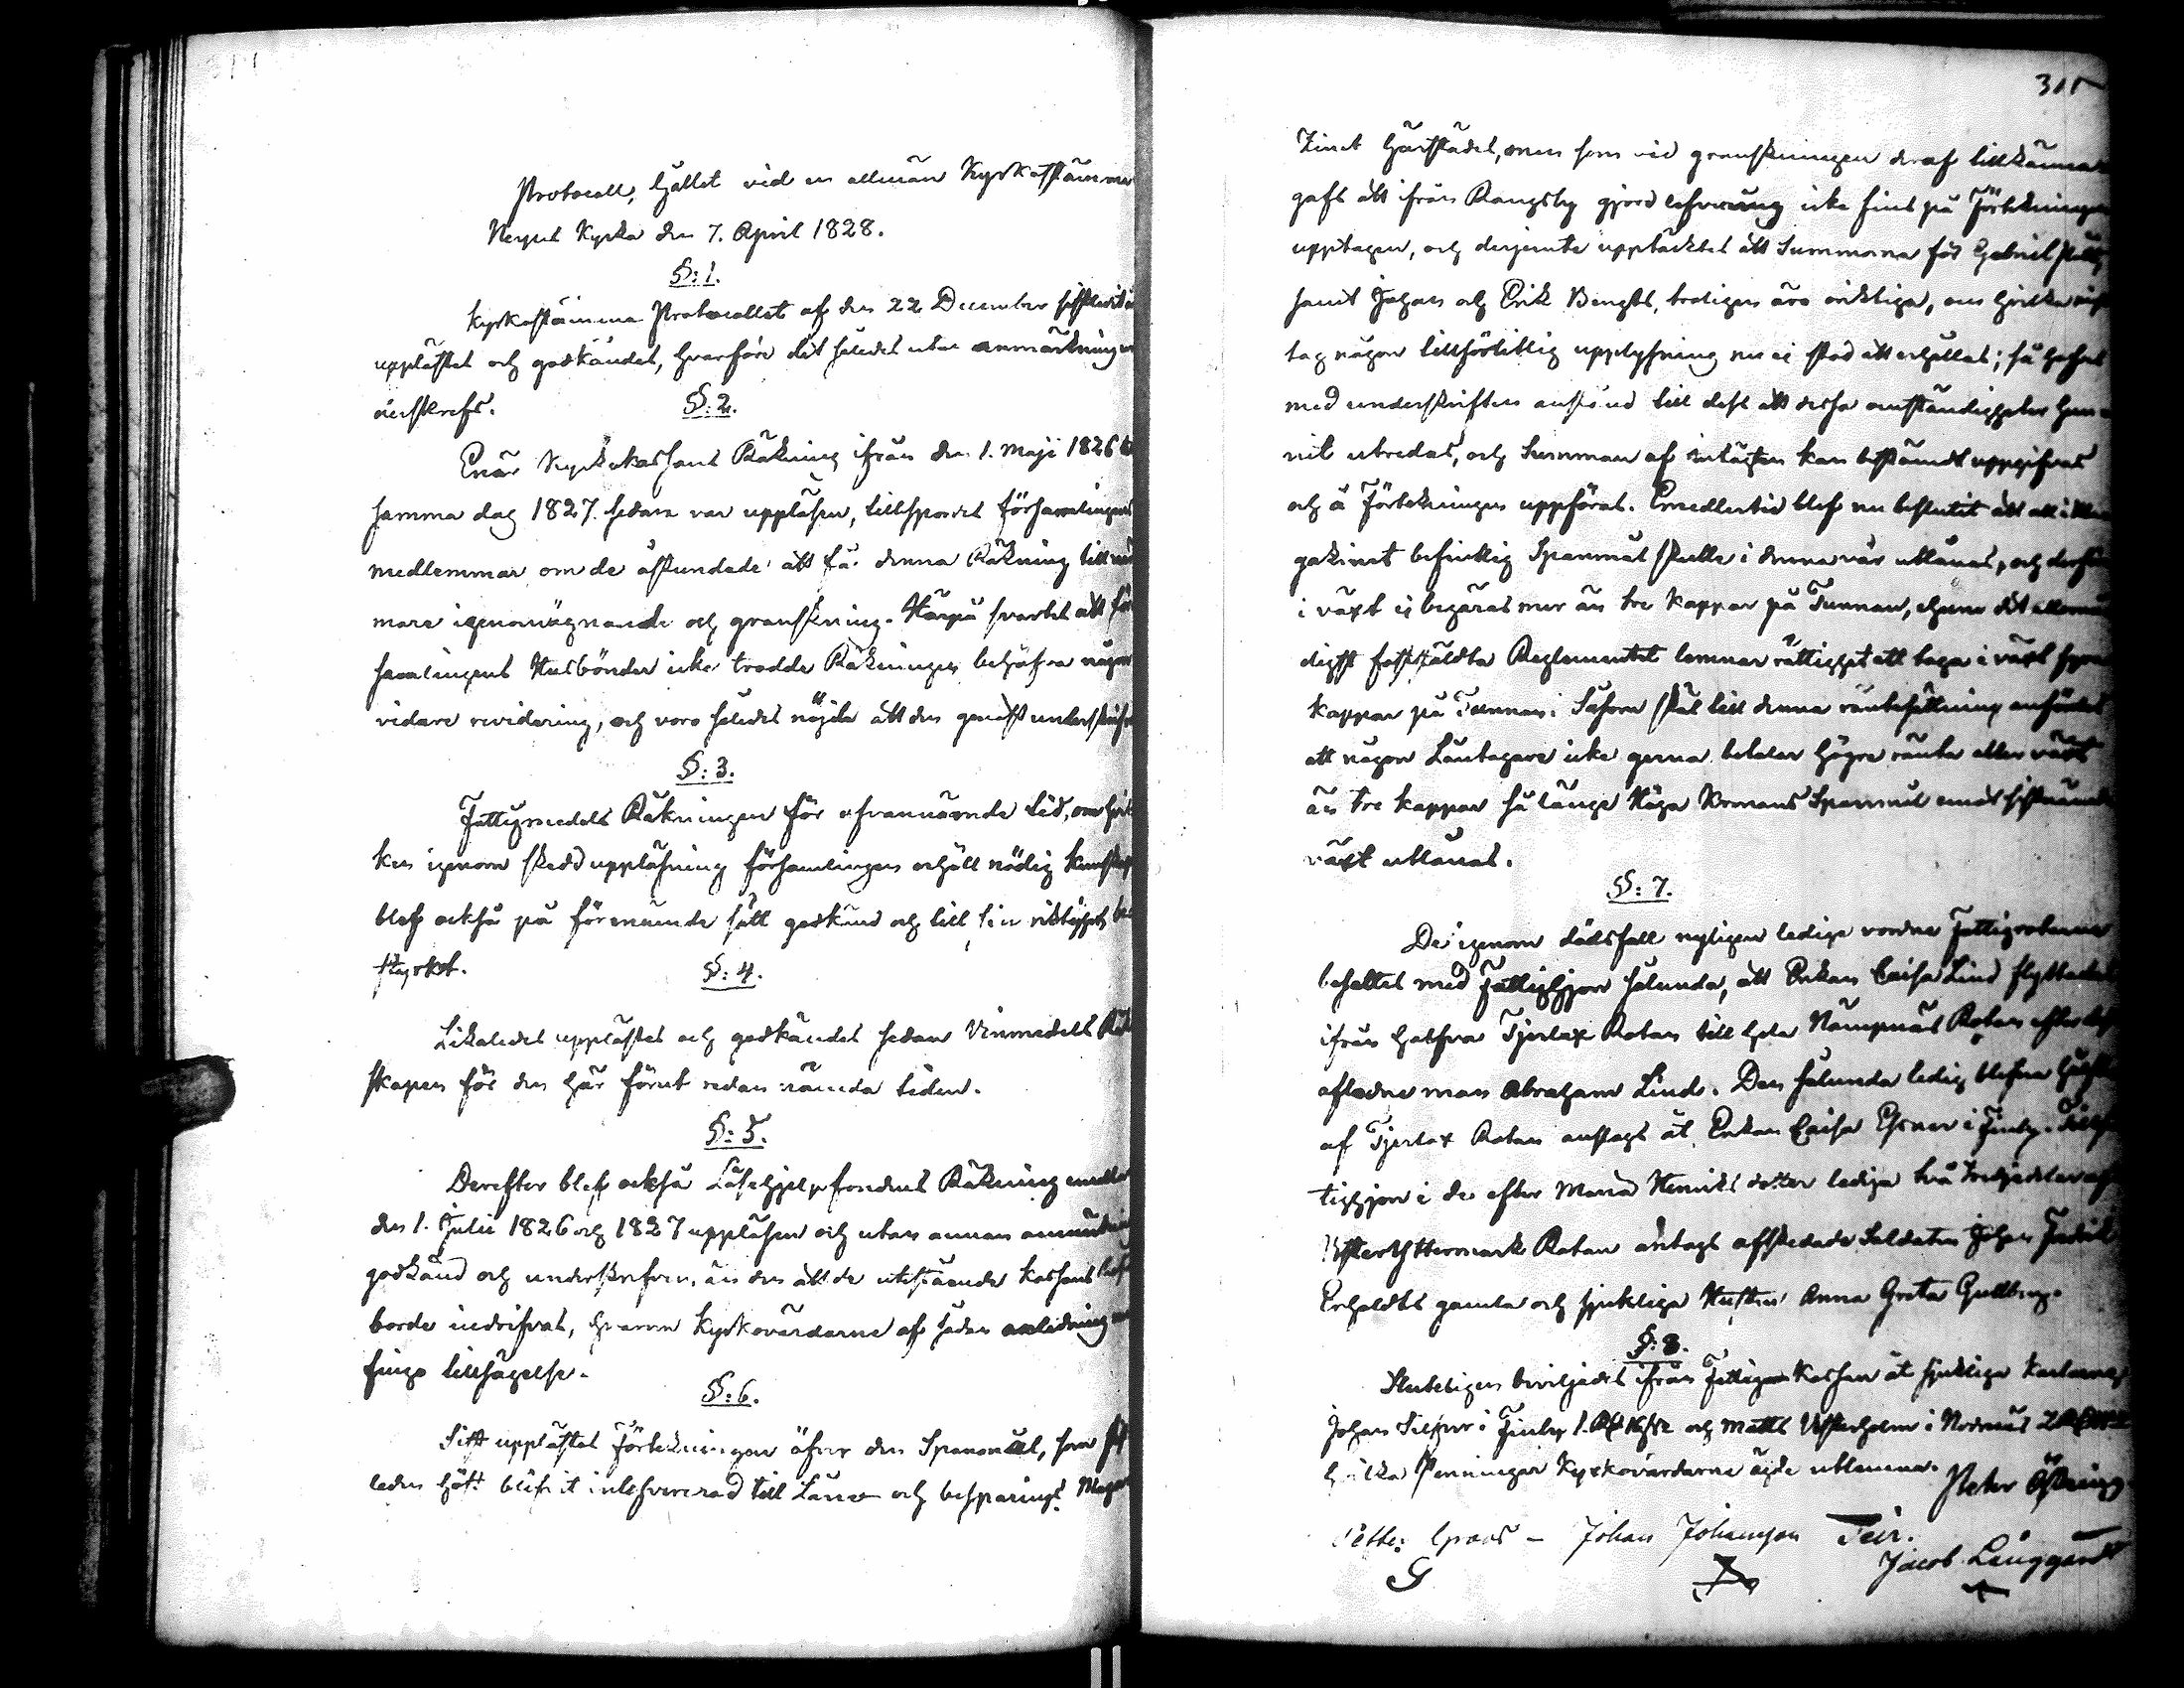 Protocoll, hållet vid en allmän Kyrkostämma
Kyrka den 7. April 1828.
§: 1.
Kyrkostämma Protocollet af den 22 December
upplästes och godkändes, hvarföre det således utan anmärkning
§: 2.
Enär Kyrkokassans Räkning ifrån den 1. Maji 1826
samma dag 1827. sedan var uppläsen, tillspordes församlingens
medlemmar om de åstundade att få denna Räkning till
mare igenomögnande och granskning. Härpå svarades att för
samlingens Husbönder icke trodde Räkningen behöfva någon
vidare revidering, och voro således nöjda att den genast
§: 3.
Fattigmedels Räkningen för ofvannämnde tid, om hvil
ken igenom skedd uppläsning församlingen erhöll nödig kunskap
blef också på förenämde sätt godkänd och till sin riktighet be
styrkt.
§: 4.
Likaledes upplästes och godkändes sedan Vinmedels
skapen för den här förut redan nämda tiden.
§: 5.
Derefter blef också Läsehjelpsfondens Räkning emellan
den 1. Julii 1826 och 1827 uppläsen och utan annan
godkänd och underskrefven, än den att de utestående kassans
borde indrifvas, hvarom Kyrkovärdarne af sådan anledning
fingo tillsägelse.
§: 6.
Sist upplästes Förtekningen öfver den Spanmål, som
ledne höst blifvit inlefvererad till Låne och besparings Maga
315
Zinet härstädes, men som vid granskningen deraf tillkänna
gafs att ifrån Rangsby gjord lefvrering icke fins på Förtekningen
upptagen, och derjemte upptäcktes att Summorna för Gabriel
samt Johan och Erik Bengts, troligen äro oriktiga, om hvilka
tag någon tillförlitlig upplysning nu ej stod att erhållas; så
med underskriften anstånd till dess att dessa omständigheter hun
nit utredas, och Summan af intägten kan bestämdt uppgifvas
och å Förtekningen uppföras. Emedlertid blef nu beslutit att all i
gazinet befintlig Spanmål skulle i denna vår utlånas, och
i växt ej begäras mer än tre kappar på Tunnan, ehuru det
digst fastställda Reglementet lemnar rättighet att taga i växt fyra
kappar på Tunnan. Såsom skäl till denna räntesättning anfördes
att någon Låntagare icke gerna betalar högre ränta eller växt
än tre kappar så länge Höga Kronans Spanmål emot sistnämde
växt utlånas.
§: 7.
De igenom dödsfall nyligen ledige vordne Fattigrotarne
besattes med Fattighjon sålunda, att Enkan Caisa Lind flyttades
ifrån halfva Tjerlax Rotan till hela Nämpnäs Rotan efter dess
aflidne man Abraham Lind. Den sålunda ledig blefna hälften
af Tjerlax Rotan anslogs åt Enkan Caisa i Finby.
tighjon i de efter Maria Henriksdotter lediga två tredjedelar af
Rotan antogs afskedade Soldaten Johan
gamla och sjukliga Hustru Anna Greta Gullberg.
§: 8.
Slutligen beviljades ifrån Fattigkassan åt sjukliga karlarne
Johan i Finby och Matts Westerholm i Norrnäs
hvilka Penningar Kyrkovärdarne ägde utlemna.
Peter
Petter – Johan Johansson Teir.
Jacob Långgård